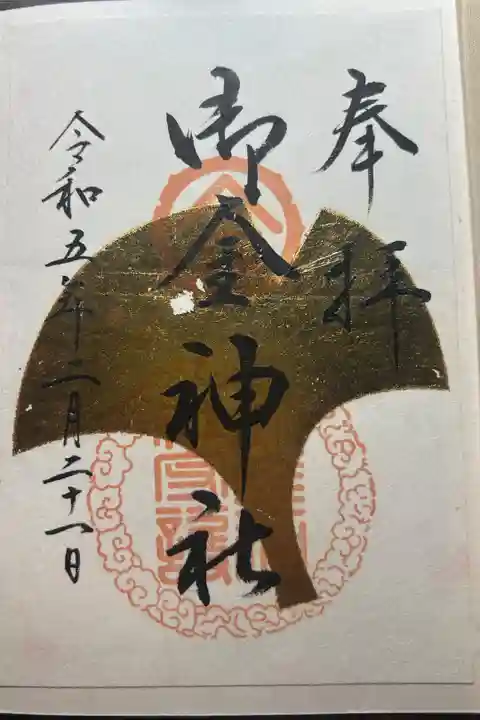 奉拝
御金神社
令和五年二月二十一日